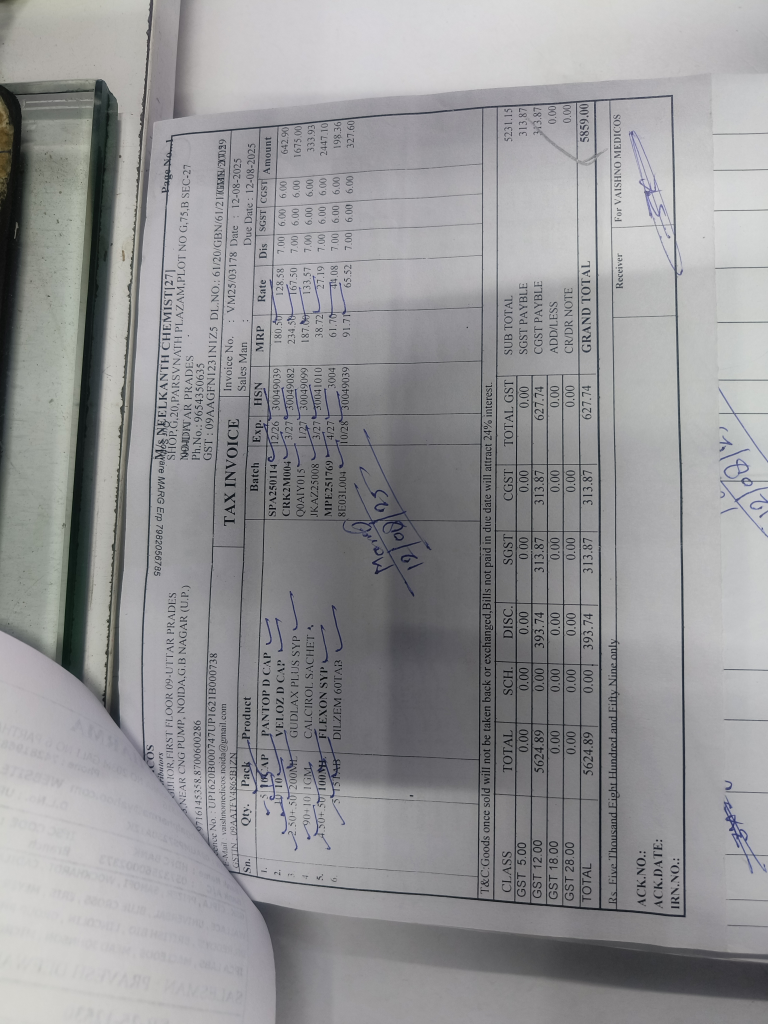 M/s NEELKANTH CHEMIST[27]
SHOP,G,20,PARSVNATH PLAZAM,PLOT NO G,75,B SEC-27
Ph.No.: 9654350635
GST : 09AAGFN1231N1Z5 DL.NO.: 61/20/GBN/61/21/
Page No..1
ware MARG Erp 7982056785
FIRST FLOOR 09-UTTAR PRADES
NEAR CNG PUMP, NOIDA,G.B NAGAR (U.P.)
9716145358,8700600286
UP1620B000747UP1621B000738
Mail: vaishnomedicos.noida@gmail.com
TAX INVOICE
Invoice No. : VM25/03178 Date : 12-08-2025
Sales Man : Due Date : 12-08-2025
Sn. Qty. Pack Product Batch Exp. HSN MRP Rate Dis SGST CGST Amount
1. 5 CAP PANTOP D CAP SPA250114 12/26 30049039 180.50 128.58 7.00 6.00 6.00 642.90
2. 10 VELOZ D CAP CRK2M004 3/27 30049082 234.50 167.50 7.00 6.00 6.00 1675.00
3 2.50+.50 200ML GUDLAX PLUS SYP Q0AIY015 1/27 30049099 133.57 7.00 6.00 6.00 333.93
4. 90+10 1GM CALCIROL SACHET JKAZ25008 3/27 30041010 38.72 27.19 7.00 6.00 6.00 2447.10
5. 4.50+.50 100ML FLEXON SYP MPE251769 4/27 3004 44.08 7.00 6.00 6.00 198.36
6. 5 DILZEM 60TAB 8E03L004 10/28 30049039 91.71 65.52 7.00 6.00 6.00 327.60
19/08/25
T&C:Goods once sold will not be taken back or exchanged,Bills not paid in due date will attract 24% interest.
CLASS TOTAL SCH. DISC. SGST CGST TOTAL GST
GST 5.00 0.00 0.00 0.00 0.00 0.00 0.00
GST 12.00 5624.89 0.00 393.74 313.87 313.87 627.74
GST 18.00 0.00 0.00 0.00 0.00 0.00 0.00
GST 28.00 0.00 0.00 0.00 0.00 0.00 0.00
TOTAL 5624.89 0.00 393.74 313.87 313.87 627.74
SUB TOTAL 5231.15
SGST PAYBLE 313.87
CGST PAYBLE 313.87
ADD/LESS 0.00
CR/DR NOTE 0.00
GRAND TOTAL 5859.00
Rs. Five Thousand Eight Hundred and Fifty Nine only
ACK.NO.:
ACK.DATE:
IRN.NO.:
Receiver
For VAISHNO MEDICOS